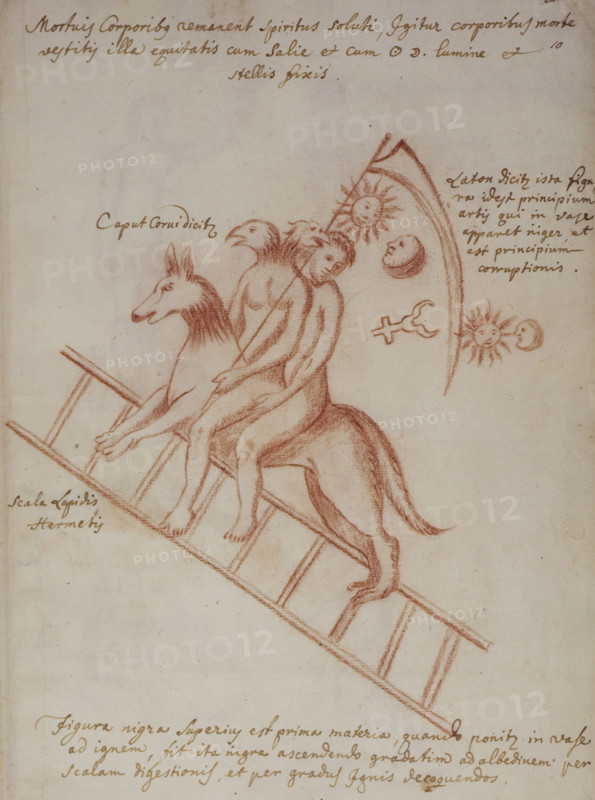 10
Mortuis Corporibq remanent spiritus soluti, Igitur corporibus morte
vestitis illa equitatis cum Salie et cum ☉ D. lumine et
stellis fixis.
Laton dicitz ista figu
ra idest principium
artis qui in vase
apparet niger et
est principium
corruptionis.
Caput Corui dicitz
Scala Lapidis
Hermetis
Figura nigra superius est prima materia, quando ponitz in vase
ad ignem, fit ita nigra ascendendo gradatim ad albedinem per
scalam digestionis, et per gradus Ignis decoquendos.
PHOTO12